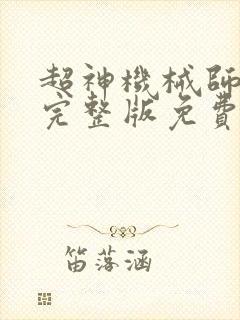 超神機械師
完整版免費
笛落涵